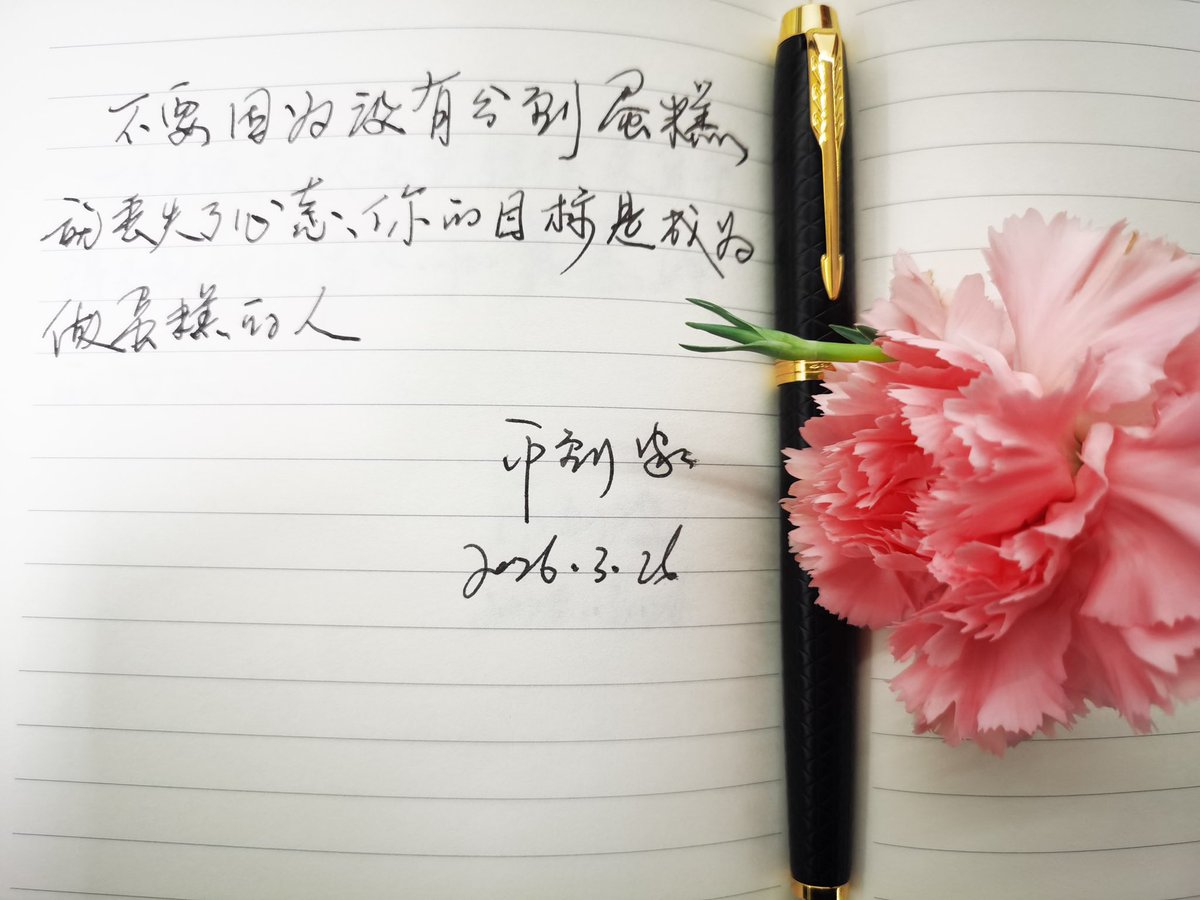 不要因为没有分到蛋糕,
就丧失了心态、你的目标是成为
做蛋糕的人
2026.3.26